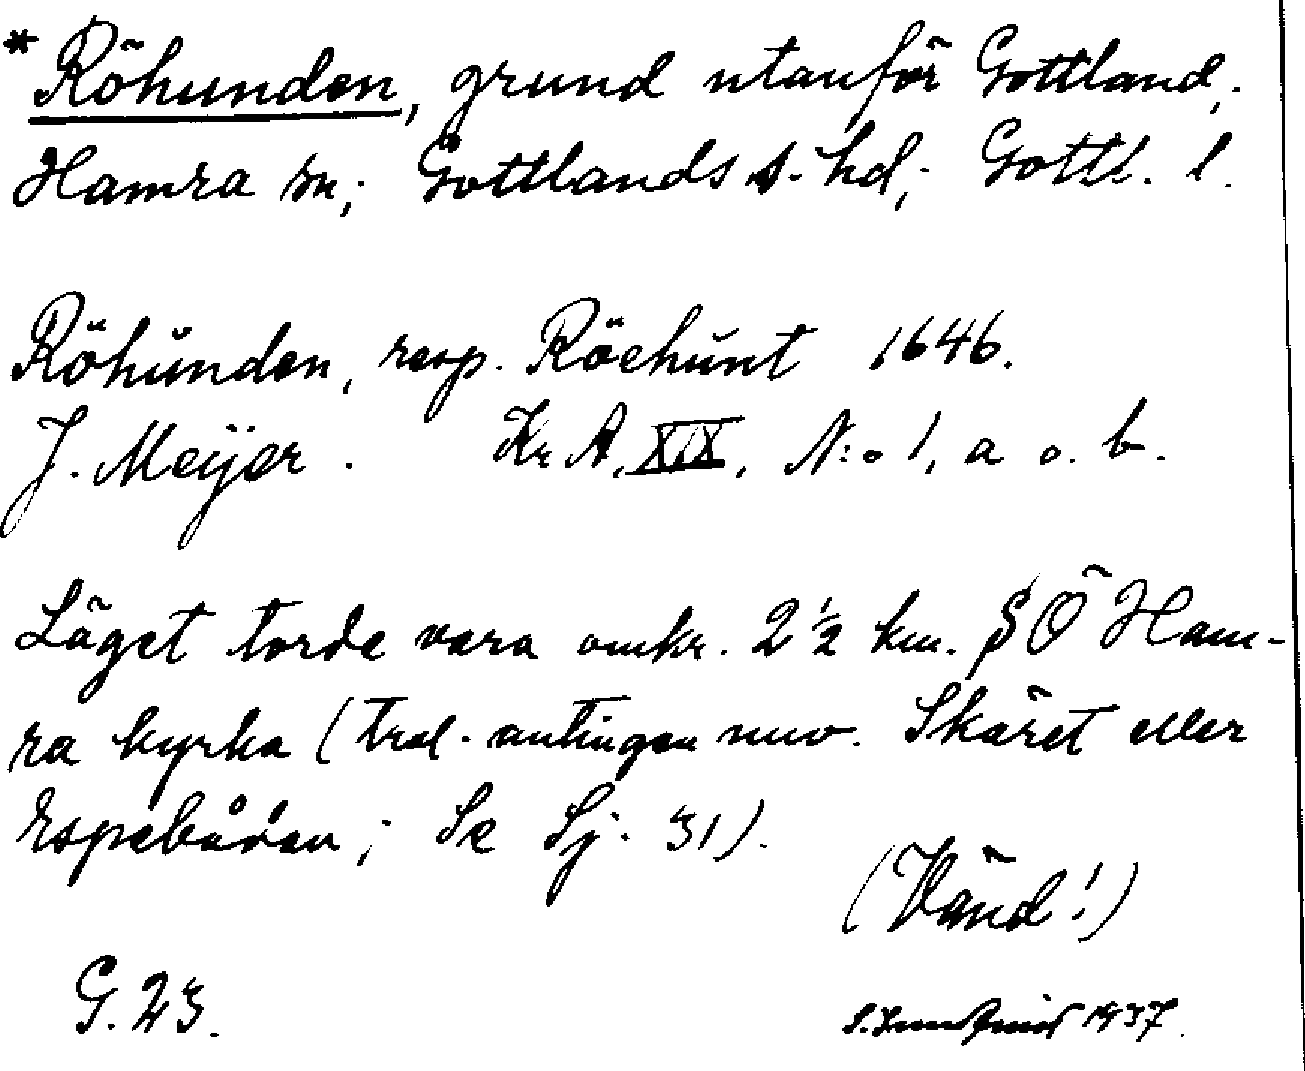 * Röhunden, grund utanför Gottland,.
Hamra sn; Gottlands s. hd; Gottl. l.
Röhŭnden, resp. Röehŭnt 1646.
J. Meÿer. Kr A, XIX, N:o 1, a o. b.
Läget torde vara omkr. 2 ½ km. SÖ Ham-
ra kyrka (trol. antingen nuv. Skäret eller
Espebåden; Se Sj. 31).
(Vänd!)
G. 23. 1937.